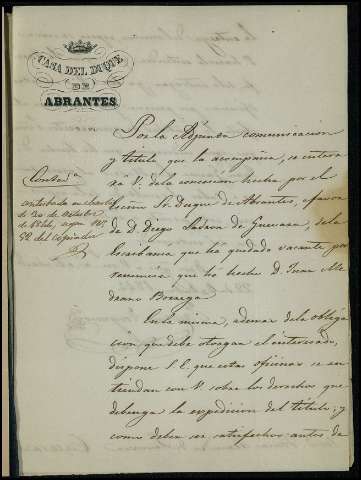 CASA DEL DUQUE
DE
ABRANTES.
Por la Adjunta comunicacion
y titulo que la acompaña, se entera
rá V. de la concesion hecha por el
Excmo Sr. Duque de Abrantes, a favor
de D. Diego Ladron de Guevara, de la
Escribania que ha quedado vacante por
renuncia que ha hecho D. Juan Me
drano Borrega
En la misma, ademas de la obliga
cion que debe otorgar el interesado,
dispone S. E. que estas oficinas se en
tiendan con V. sobre los derechos que
devenga la expedicion del titulo; y
como deben ser satisfechos antes de
Contesda
contestada en
de 20 de Octubre
de 1846, segun Nº
52 del copiador